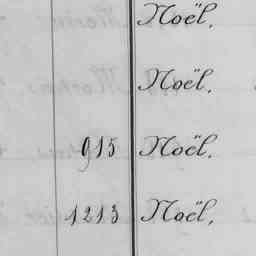 Noël.
Noël.
915 Noël.
1213 Noël.